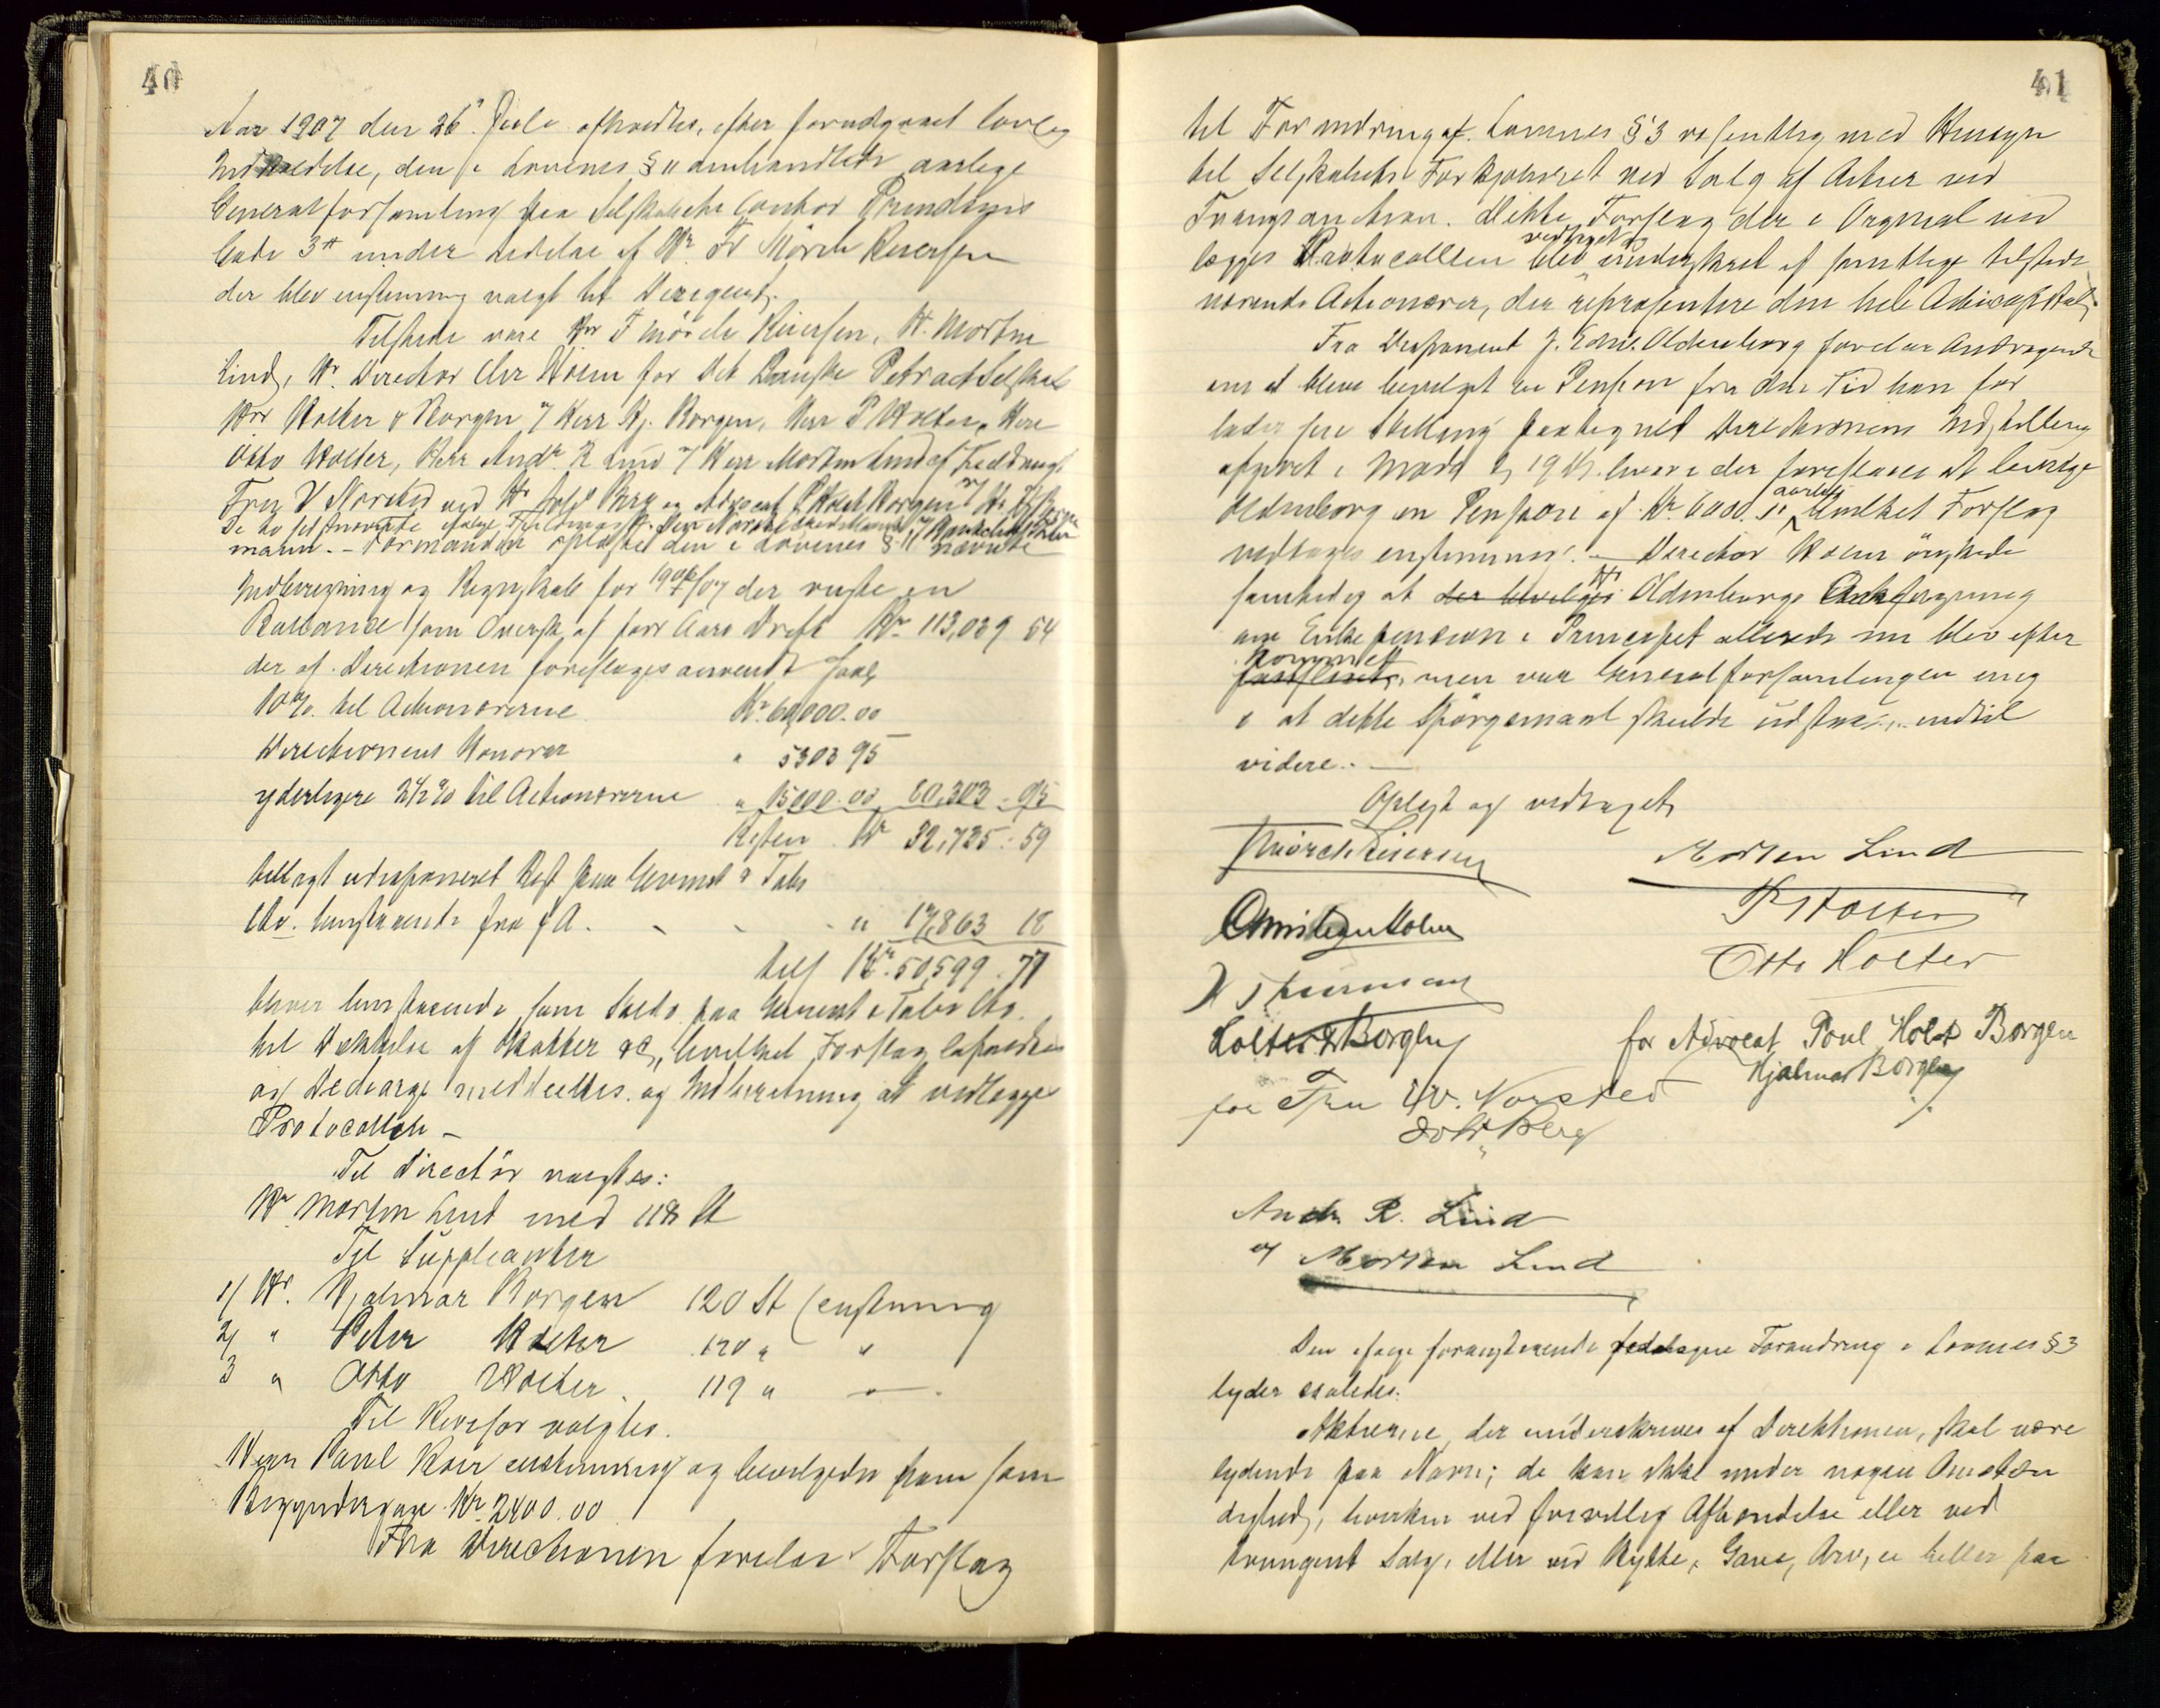 40
Aar 1907 den 26' Juli afholdtes, efter forudgaaet lovlig
Indkaldelse, den i Lovenes § 11 omhandlede aarlige
Generalforsamling paa Selskabets Contor Prindsens
Gade 3 under Ledelse af Hr. Fr Mörch Reiersen
der blev enstemmig valgt til Dirigent.
Tilstede vare Hrr F Mörch Reiersen, H. Morten
Lind, Hr. Director Chr Holm for Det Danske Petroel Selskab
Hrr Holter & Borgen v/ Herr Hj. Borgen, Herr P Holter, Herr
Otto Holter, Herr Andr. R Lind v/ Herr Morten Lind ef Fuldmagt
Fru W Norsted ved Hr Berg og Advocat P Holst Borgen v/ Hr Hj Borgen
De to sidstnævnte ifølge Fuldmagt.
mann. – Formanden oplæste den i Lovenes § 11 nævnte
Indberetning og Regnskab for 1906/07 der viste en
Ballance som Oversk. af forr Aars Drift Kr 113,039 54
der af Directionen foresloges anvendt saal.
10% til Actionærerne Kr. 60,000.00
Directionens Honorar " 5303 95
yderligere 2 1/2 % til Actionærerne " 15000.00 80,303.95
Resten Kr 32,735.59
tillagt udisponeret Rest paa Gevinst & Tabs
Cto. henstaaende fra f A. " 17,863 18
tils Kr. 50,599.77
bliver henstaaende som Saldo paa Gevinst & Tabs Cto.
til Dækkelse af Skatter &c, hvilket Forslag
og Decharge meddeeltes og Indberetning at vedlægges
Protocollen –
Til Directör valgtes:
Hr Morten Lind med 118 St
Til Suppleanter
1/ Hr. Hjalmar Borgen 120 St (enstemmig
2/ " Peter Holter 120 " "
3 " Otto Holter. 119 " —.
Til Revisor valgtes.
Herr Paul enstemmig og bevilgedes ham som
Kr. 2400.00
Fra Directionen forelaa Forslag
41
til Forandring af Lovenes § 3 væsentlig med Hensyn
til Selskabets Forkjøbsret ved Salg af Actier ved
Tvangsauction. Dette Forslag der i Original ved
lægges Protocollen blev vedtaget og underskret af samtlige tilstede
værende Actionærer, der repræsentere den hele Actiecapital.
Fra Disponent J. Edw. Oldenborg forelaa Andragende
om at blive bevilget en Pension fra den Tid han for
lader sin Stilling paategnet Directionens Indstilling
afgivet i Møde hvori der foreslaaes at bevilge
Oldenborg en Pension af Kr. 6000. aarlig hvilket Forslag
vedtages enstemmig. – Director Holm ønskede
samtidig at der bevilges Hr Oldenborgs Ansøgning
om Enkepension i Principet allerede nu blev efter
kommet fastslaaet, men var Generalforsamlingen enig
i at dette Spörgsmaal skulde udstaa indtil
videre. –
Oplæst og vedtaget
F Mörch Reiersen
Morten Lind
P Holter
Christian Holm
Otto Holter
H Thurmann
Holter & Borgen
for Advocat Poul Holst Borgen
Hjalmar Borgen
for Fru W. Norsted
Berg
Andr. R. Lind
v/ Morten Lind
Den ifølge foranstaaende Forandring i Lovenes § 3
lyder saaledes:
Aktierne, der underskrives af Direktionen, skal være
lydende paa Navn; de kan ikke under nogen Omstæn
dighed, hverken ved frivillig Afhændelse eller ved
tvungent Salg, eller ved Bytte, Gave, Arv, ei heller paa